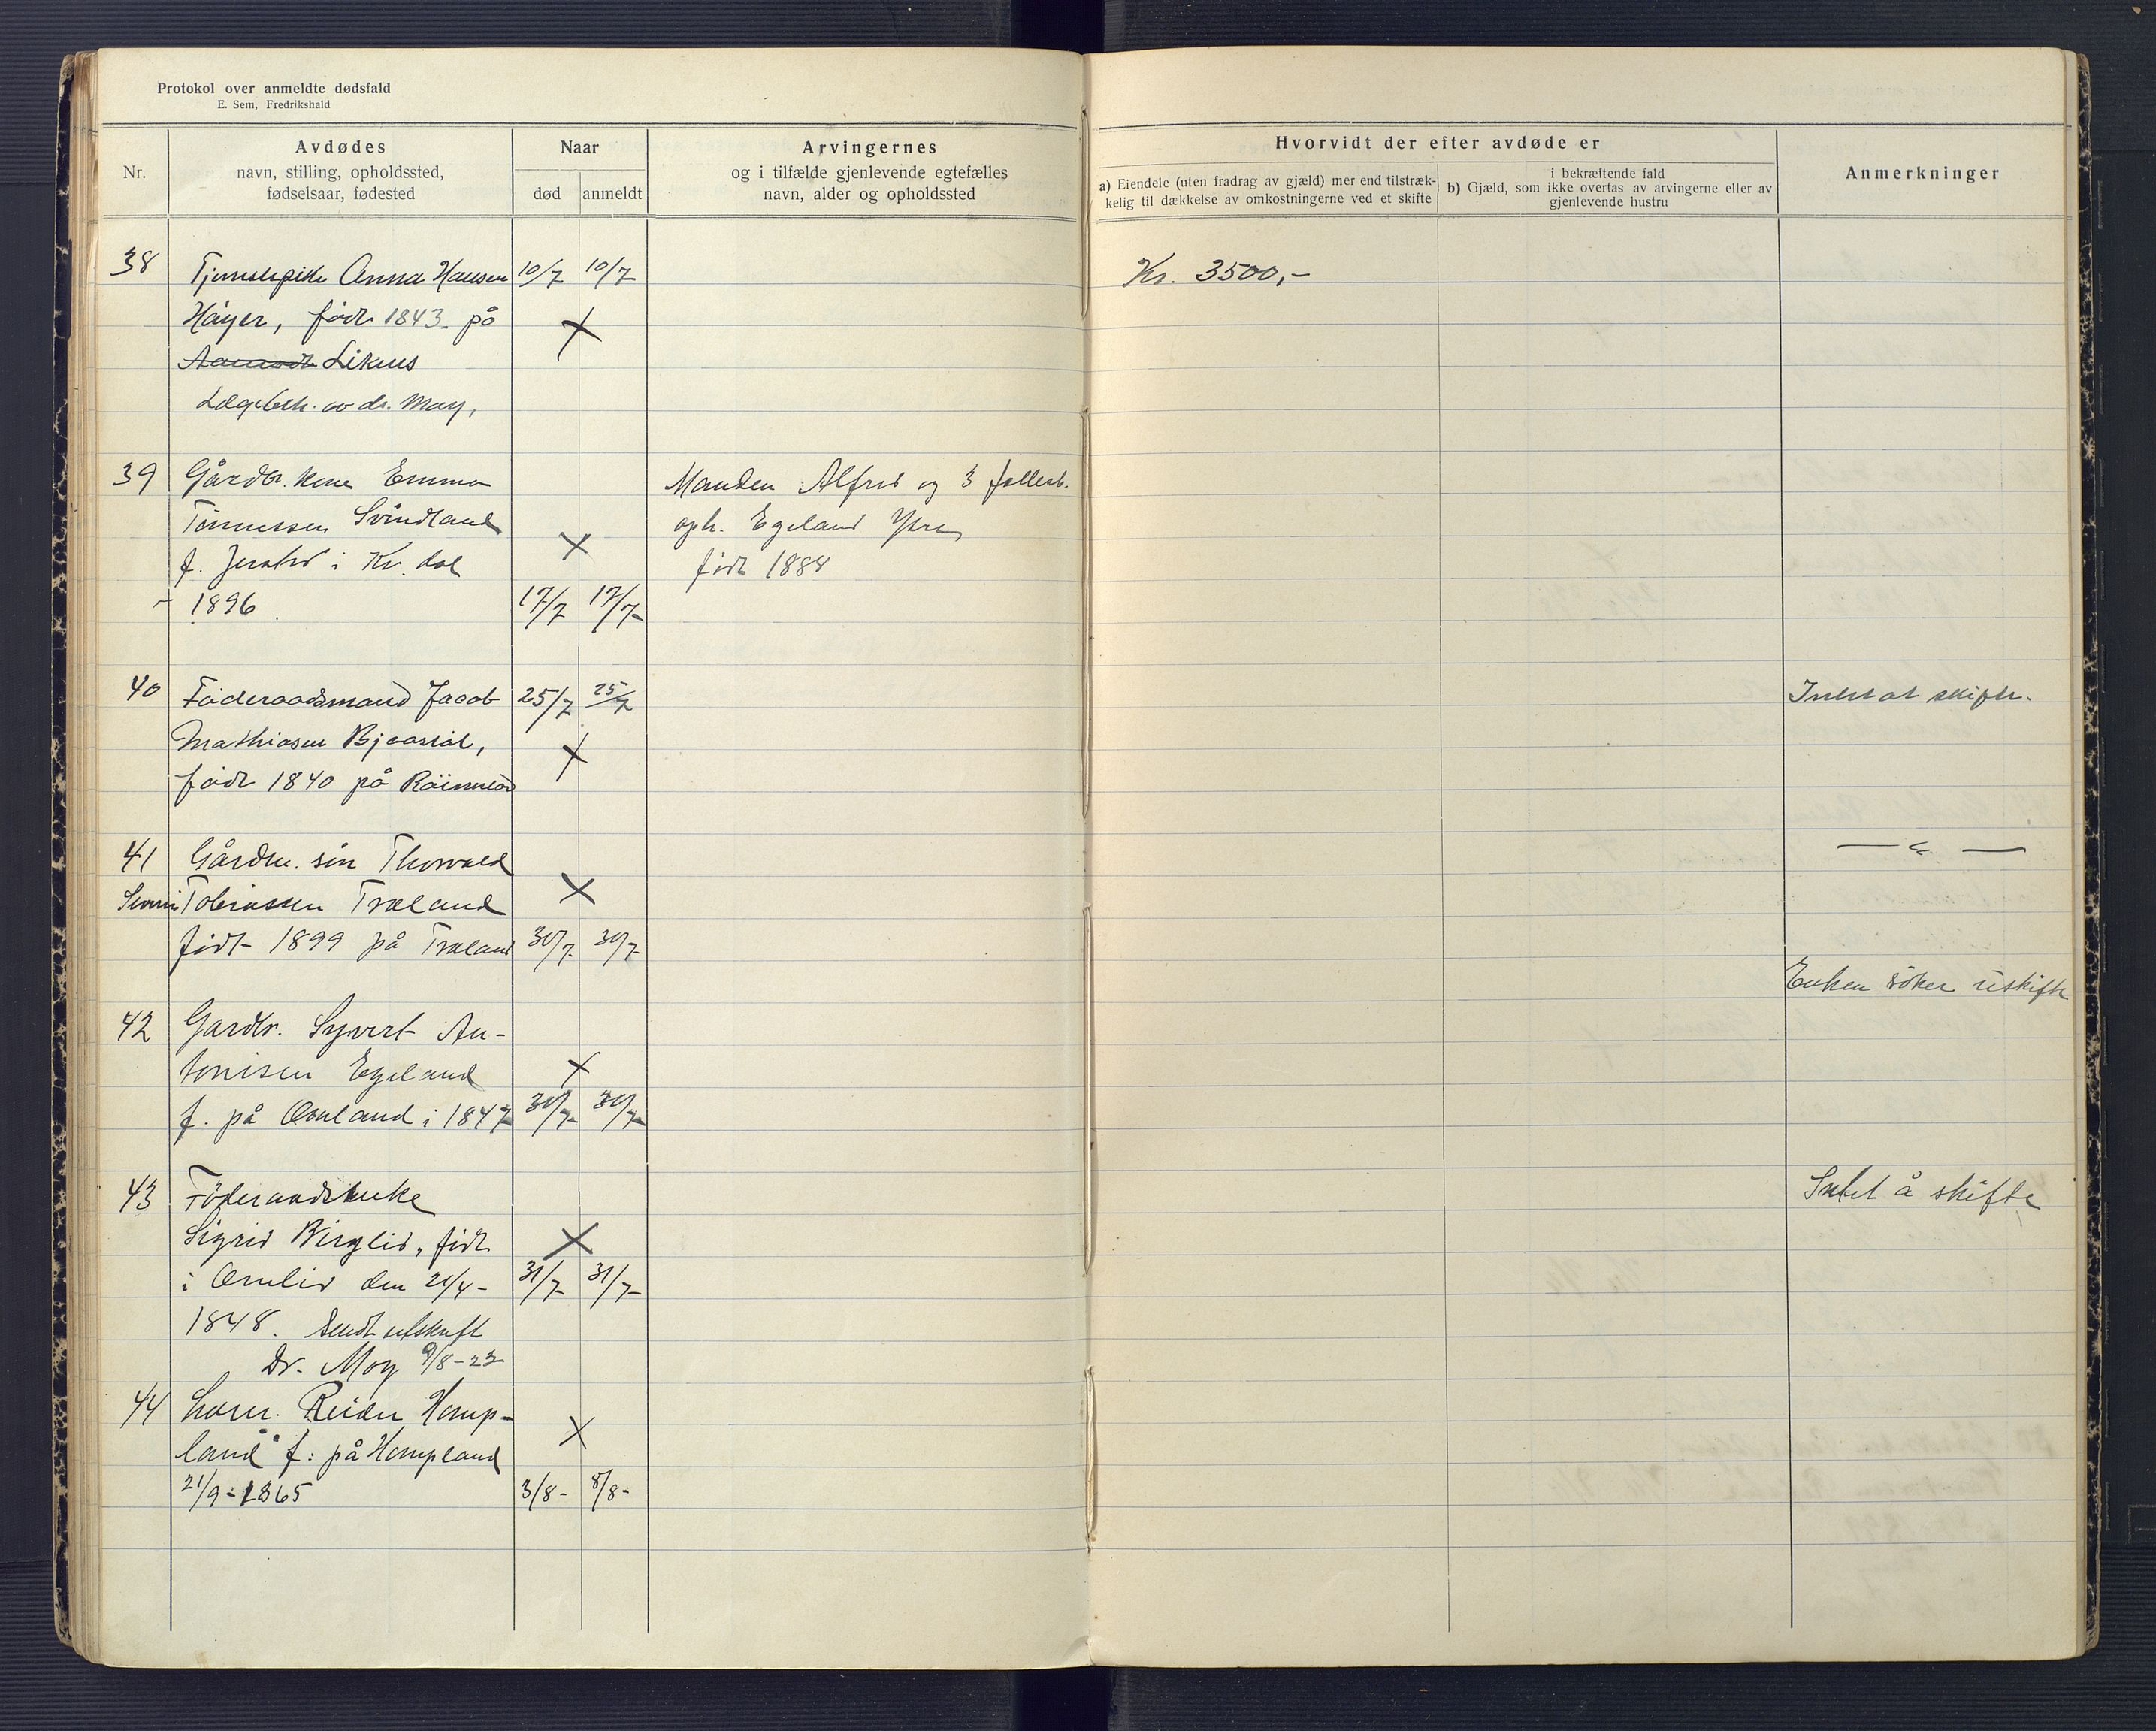 Protokol over anmeldte dødsfald
E. Sem, Fredrikshald
Nr.
Avdødes
navn, stilling, opholdssted,
fødselsaar, fødested
Naar
død
anmeldt
Arvingernes
og i tilfælde gjenlevende egtefælles
navn, alder og opholdssted
Hvorvidt der efter avdøde er
a) Eiendele (uten fradrag av gjæld) mer end tilstræk-
kelig til dækkelse av omkostningerne ved et skifte
i bekræftende fald
b) Gjæld, som ikke overtas av arvingerne eller av
gjenlevende hustru
Anmerkninger
38 Tjenestepike Anna Hansen 10/7 10/7 Kr. 3500,-
Høyer, født 1843 på
Liknes
av dr. Moy,
39 Gårdbr. kone Emma Manden Alfred og 3 fellesb.
Tønnessen Svindland oph. Egeland Ytre
f. i Kv.dal født 1888
1896 17/7 17/7
40 Føderaadsmand Jacob 25/7 25/7 Intet at skifte.
Mathiasen
født 1840 på
41 Gårdm. søn Thorvald — " —
Tobiassen Træland
født 1899 på Træland 30/7 30/7
Enken søker uskifte
42 Gardbr. Syvert An-
tonisen Egeland
f. på Omland i 1847 30/7 30/7
43 Føderaadsenke Intet å skifte
Sigrid Birglid, født
i den 21/4- 31/7 31/7
1848. Sendt utskrift
Dr. Moy 9/8-22
44 Reidar Homp-
land f. på Hompland
21/9-1865 3/8- 8/8-